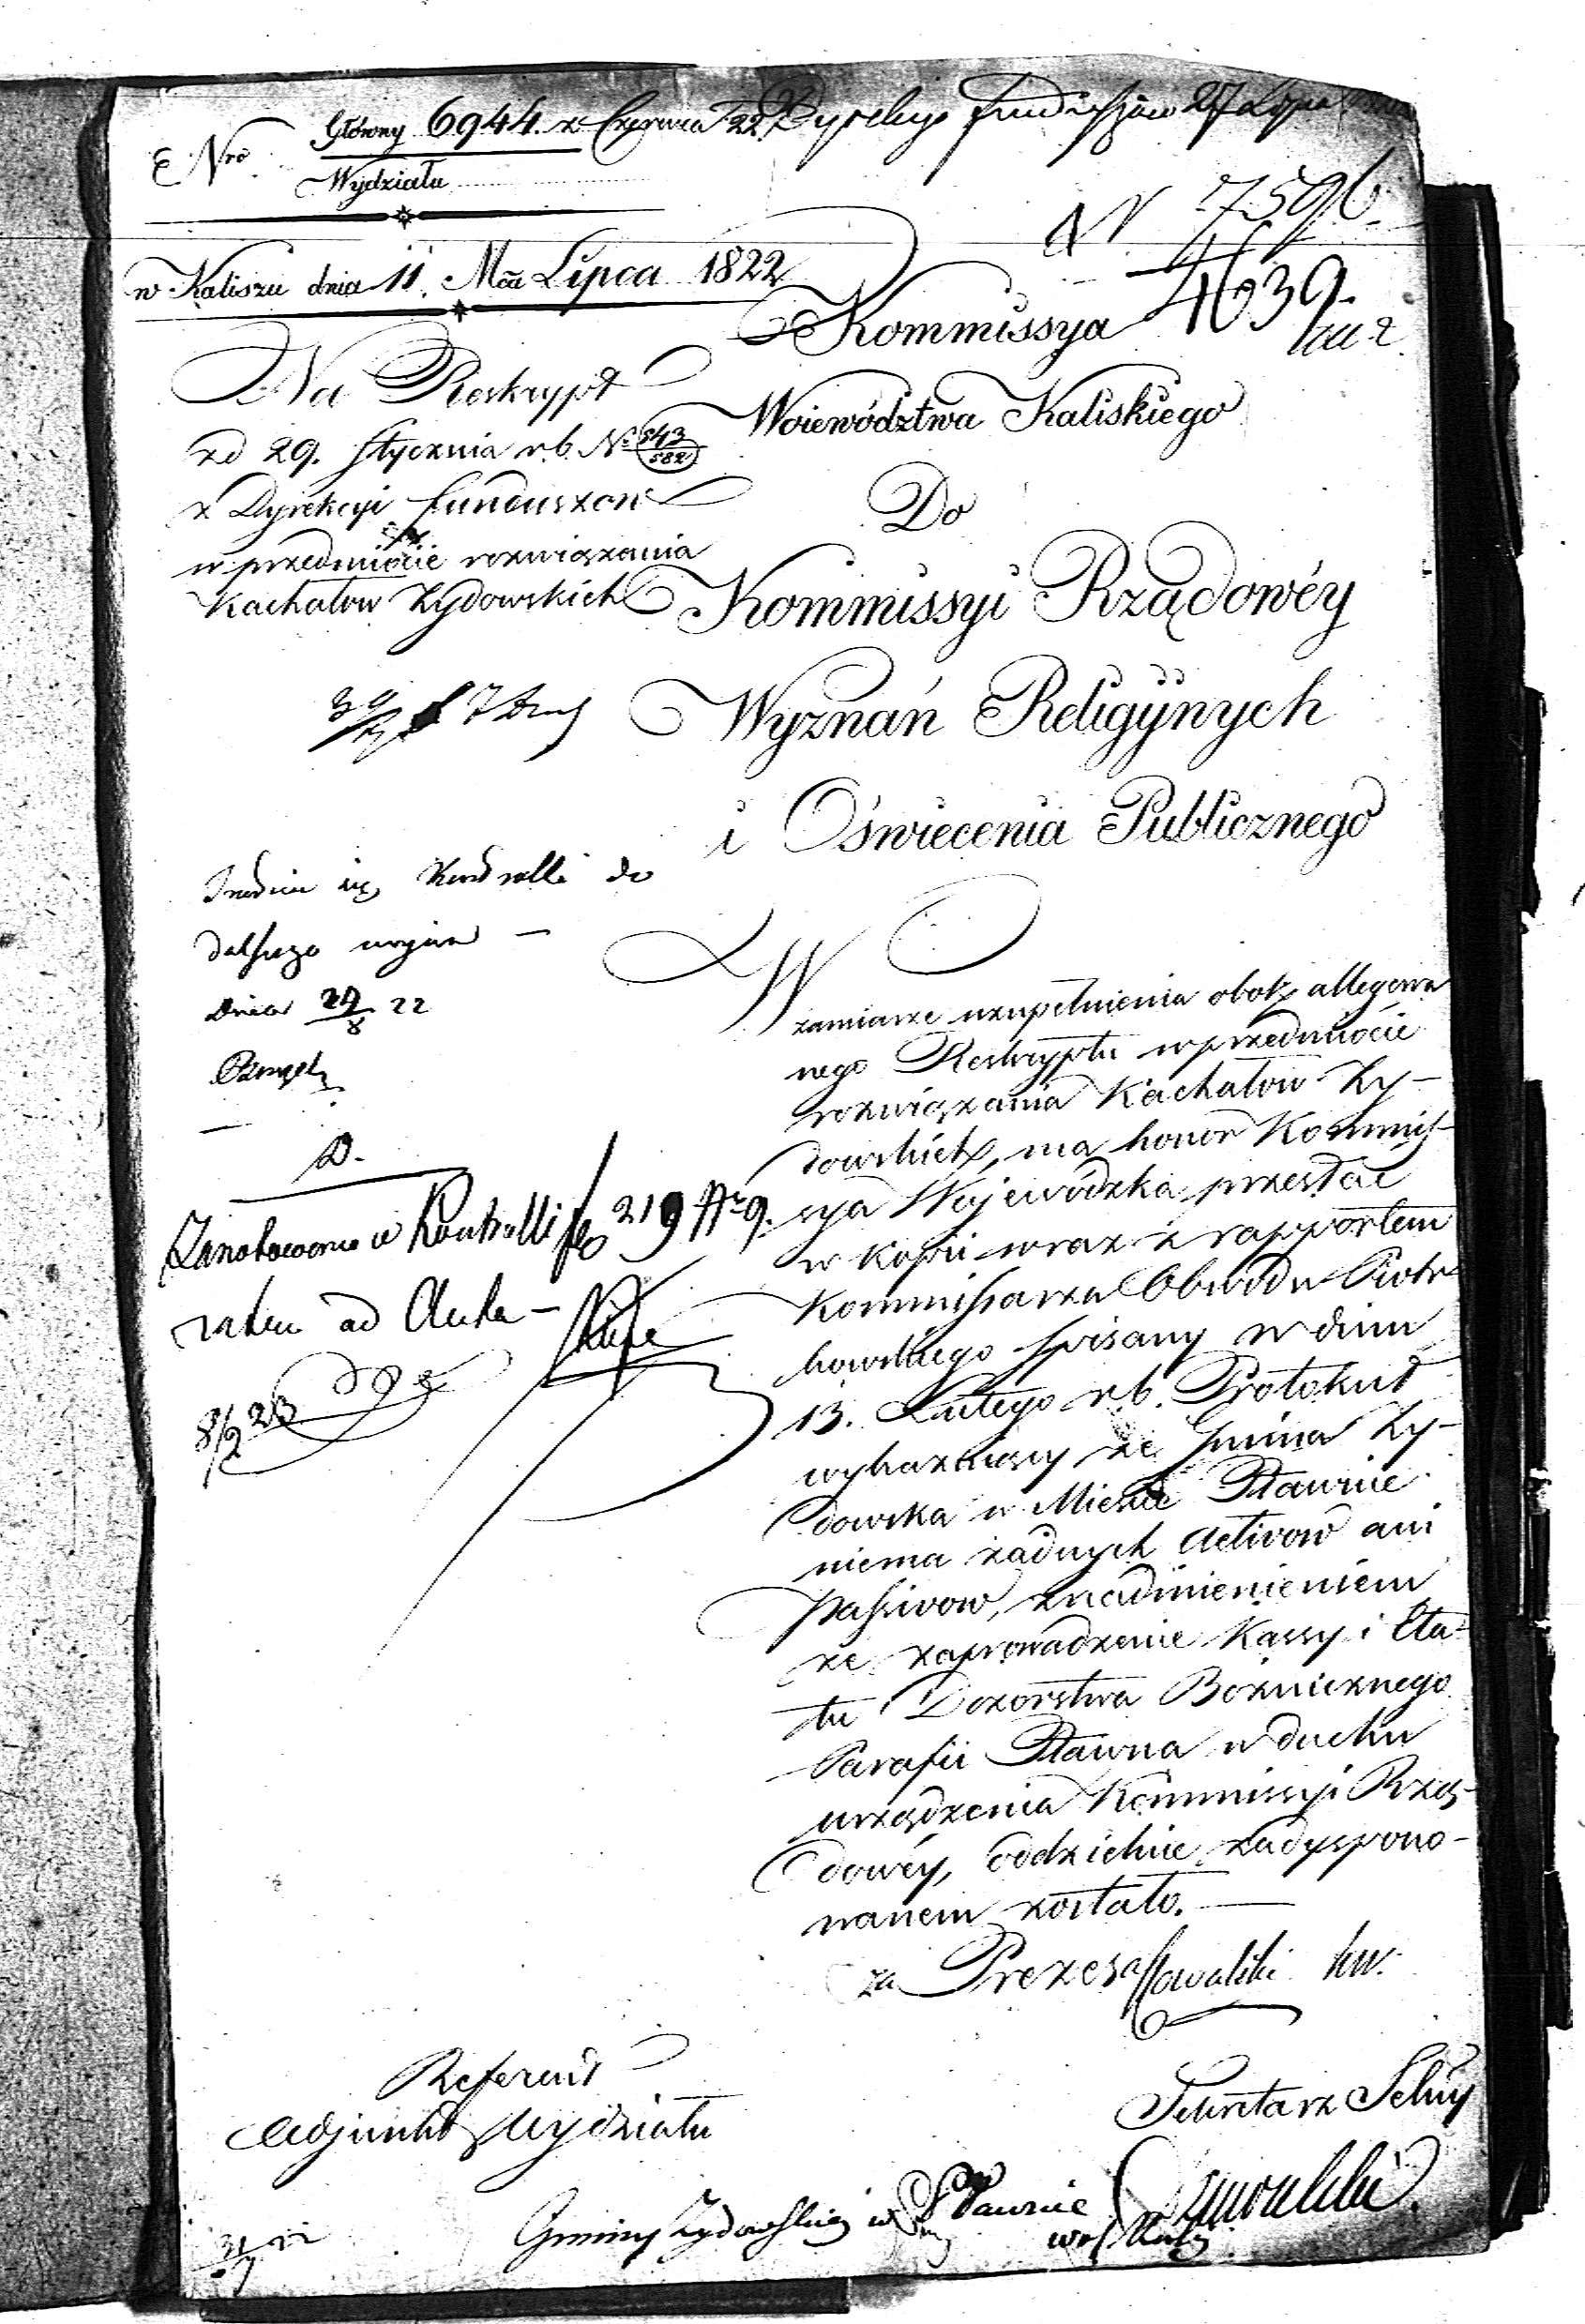 Nro Główny 6944. z Czerwca 22
Wydziału
w Kaliszu dnia 11. Mca Lipca 1822
N 7596
4639.
Kommissya
Woiewództwa Kaliskiego
Do
Kommissyi Rządowéy
Wyznań Religijnych
i Oświecenia Publicznego
Na Reskrypt
zd 29. Stycznia r.b. No 543/582
z Dyrekcyi funduszow
w przedmiocie rozwiązania
Kachałow Żydowskich
się Kontrolli do
dalszego
Dnia 29/8 22
D.
Zanotowano w Kontrolli fo 219 No 9.
ad Acta –
8/2 23
W
zamiarze uzupełnienia obok allegowa
nego Reskryptu w przedmiocie
rozwiązania Kachałow Ży-
dowskich, ma honor Kommis-
sya Wojewódzka przesłać
w kopii wraz z rapportem
Kommissarza Obwodu Piotr
kowskiego spisany w dniu
13. Lutego r.b. Protokuł
wykazuiący że Gmina Ży-
dowska w Mieście Pławnie
niema żadnych Activow ani
Passivow, z nadmienieniem
że zaprowadzenie Kassy i Eta-
tu Dozorstwa Bożnicznego
Parafii Pławna w duchu
urządzenia Kommissyi Rzą-
dowéy, oddzielnie zadyspono-
wanem zostało. —
za Prezesa Kowalski kw.
Referent
Adjunkt Wydziału
Sekretarz Jelny
Gminy Żydowskiey w Pławnie